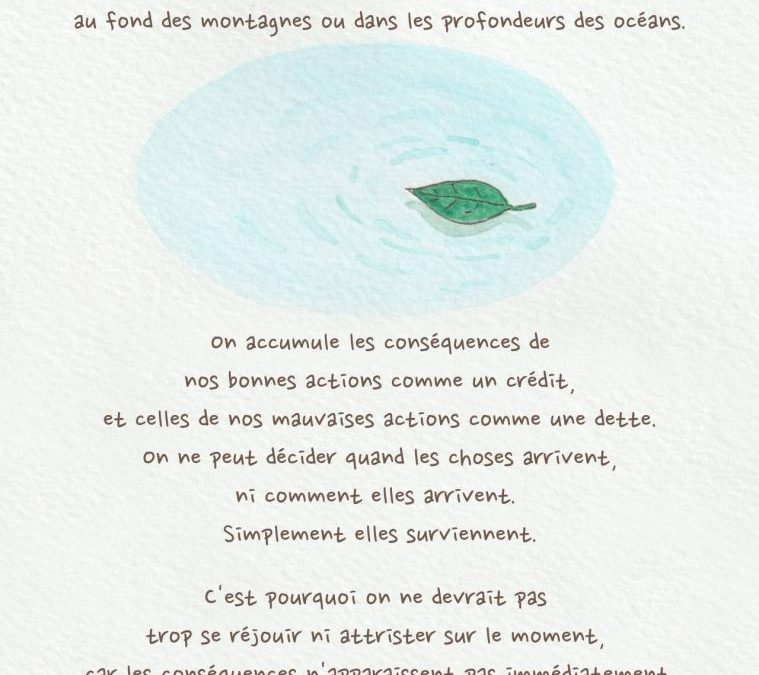 au fond des montagnes ou dans les profondeurs des océans.
On accumule les conséquences de
nos bonnes actions comme un crédit,
et celles de nos mauvaises actions comme une dette.
On ne peut décider quand les choses arrivent,
ni comment elles arrivent.
Simplement elles surviennent.
C'est pourquoi on ne devrait pas
trop se réjouir ni attrister sur le moment,
car les conséquences n'apparaissent pas immédiatement